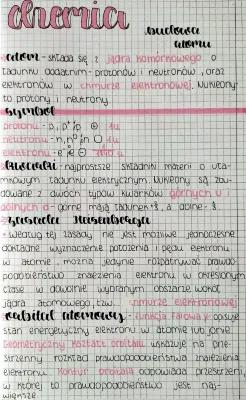 chemia
budowa
atomu
atom - składa się z jądra komórkowego o
ładunku dodatnim - protonów i neutronów, oraz
elektronów w chmurze elektronowej. Nukleony-
to protony i neutrony.
symbol
protonu - p, p⁺
neutronu - n, 1u
elektronu - e
- najprostsze składniki materii o uła-
mkowym ładunku elektrycznym. Nukleony są zbu-
dowane z dwóch typów kwarków górnych u i
dolnych d - górne mają ładunek, a dolne -
zasada Heisenberga
według tej zasady nie jest możliwe jednoczesne
dokładne wyznaczenie położenia i pędu elektronu
w atomie, można jedynie rozpatrywać prawdo-
podobieństwo znalezienia elektronu w określonym
czasie w dowolnie wybranym obszarze wokół
jądra atomowego, tzw. chmurze elektronowej
orbital atomowy - funkcja falowa opisuje
stan energetyczny elektronu w atomie lub jonie.
Geometryczny kształt orbitalu wskazuje na prze-
strzenny rozkład prawdopodobieństwa znalezienia
elektronu. Kontur orbitala odpowiada przestrzeni,
w której to prawdopodobieństwo jest naj-
większe.